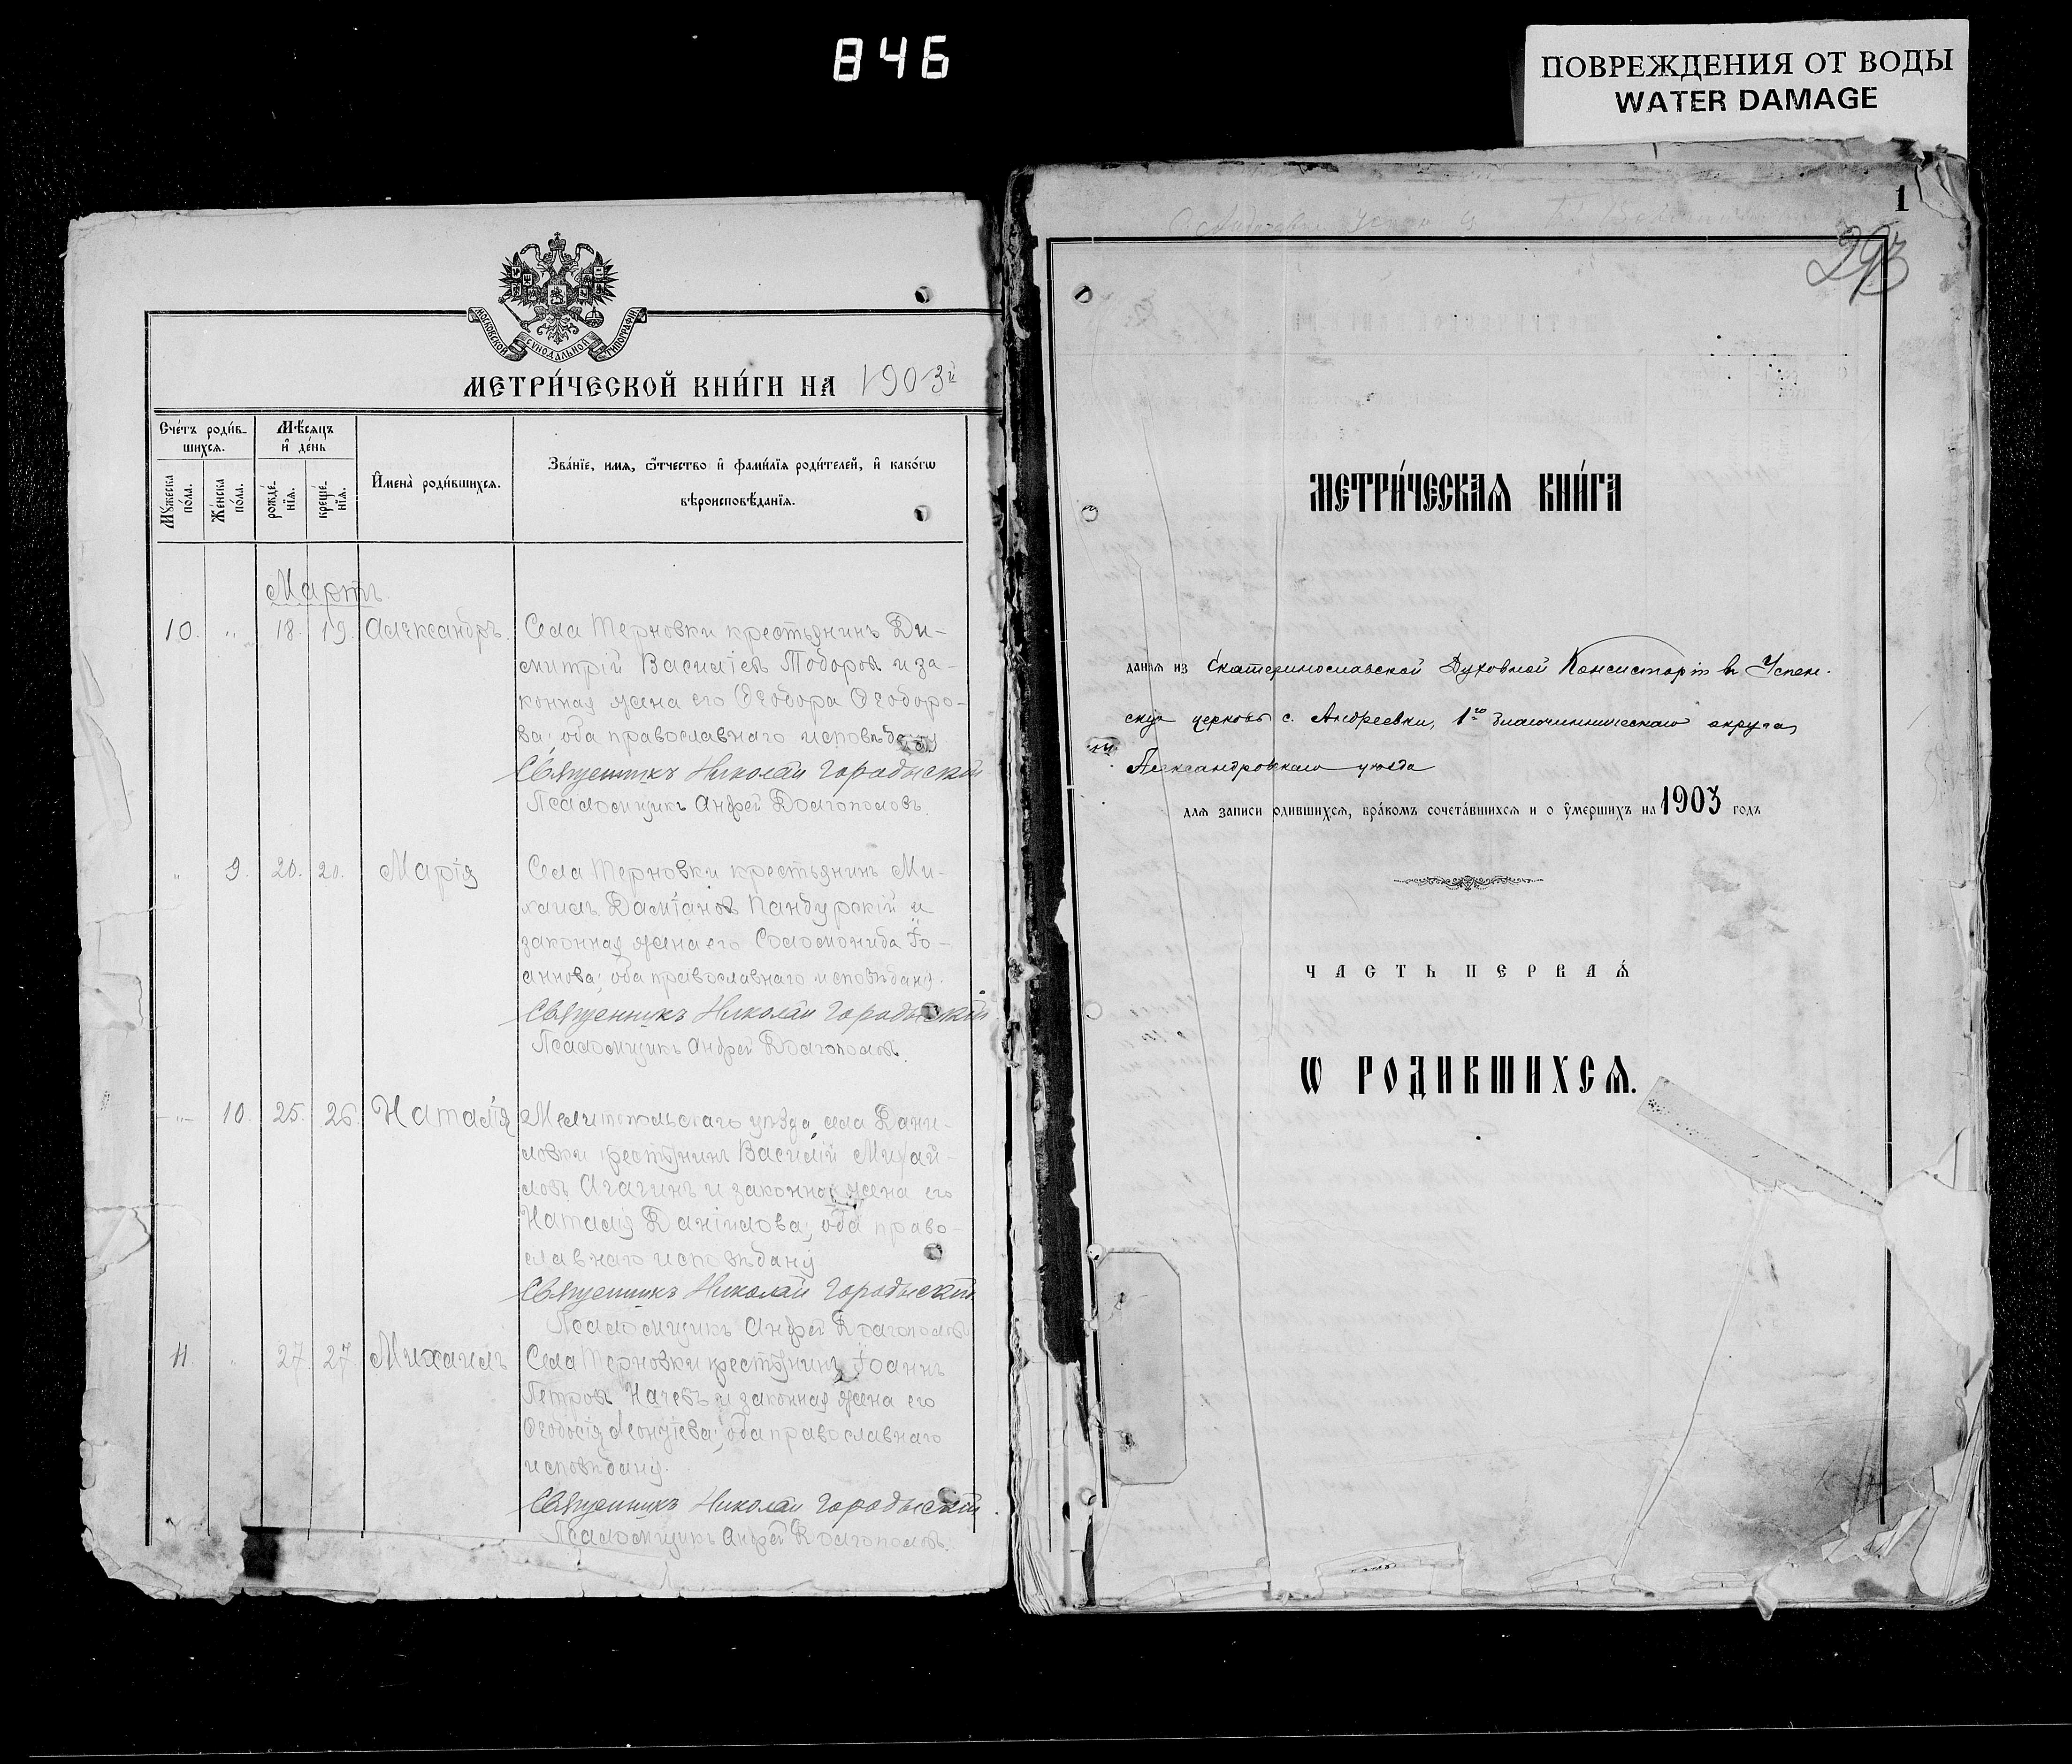 846
ПОВРЕЖДЕНИЯ ОТ ВОДЫ
WATER DAMAGE
МОСКОВСКОЙ СУНОДАЛЬНОЙ ТИПОГРАФІИ
МЕТРИ́ЧЕСКОЙ КНИ́ГИ НА 1903й
Сче́тъ роди́в-
шихсѧ.
Мѣ́сѧцъ
и҆ де́нь
Мꙋ́жеска по́ла.
Же́нска по́ла.
рожде́-
нїѧ.
креще́-
нїѧ.
И҆мена̀ роди́вшихсѧ.
Зва́нїе, имѧ, ѻ҆́тчество и҆ фами́лїѧ роди́телей, и҆ како́гѡ
вѣроисповѣ́данїѧ.
Мартъ
10. " 18. 19. Александръ. Села Терновки крестьянинъ Ди-
митрій Василіевъ Тодоровъ и за-
конная жена его Ѳеодора Ѳеодоро-
ва; оба православнаго исповѣданія
Священникъ Николай Городыскій
Псаломщикъ Андрей Долгополовъ.
" 9. 20. 20. Марія Села Терновки крестьянинъ Ми-
хаилъ Даміановъ Панбурскій и
законная жена его Соломонида Іо-
аннова; оба православнаго исповѣданія.
Священникъ Николай Городыскій
Псаломщикъ Андрей Долгополовъ.
" 10. 25. 26. Наталія Мелитопольскаго уѣзда, села Дани-
ловки крестьянинъ Василій Михай-
ловъ Агагинъ и законная жена его
Наталія Даніилова; оба право-
славнаго исповѣданія
Священникъ Николай Городыскій
Псаломщикъ Андрей Долгополовъ
11 " 27. 27 Михаилъ Села Терновки крестьянинъ Іоаннъ
Петровъ Начевъ и законная жена его
Ѳеодосія Леонтіева; оба православнаго
исповѣданія.
Священникъ Николай Городыскій
Псаломщикъ Андрей Долгополовъ.
1
293
МЕТРИ́ЧЕСКАѦ КНИ́ГА
даннаѧ из Екатеринославской Духовной Консисторіи въ Успен-
скую церковь с. Андреевки, 1го благочинническаго округа,
Александровскаго уѣзда
длѧ записи родившихсѧ, бра́комъ сочета́вшихсѧ и о ᲂу҆мершихъ на 1903 годъ
ЧАСТЬ ПЕРВАѦ
Ѡ РОДИВШИХСѦ.